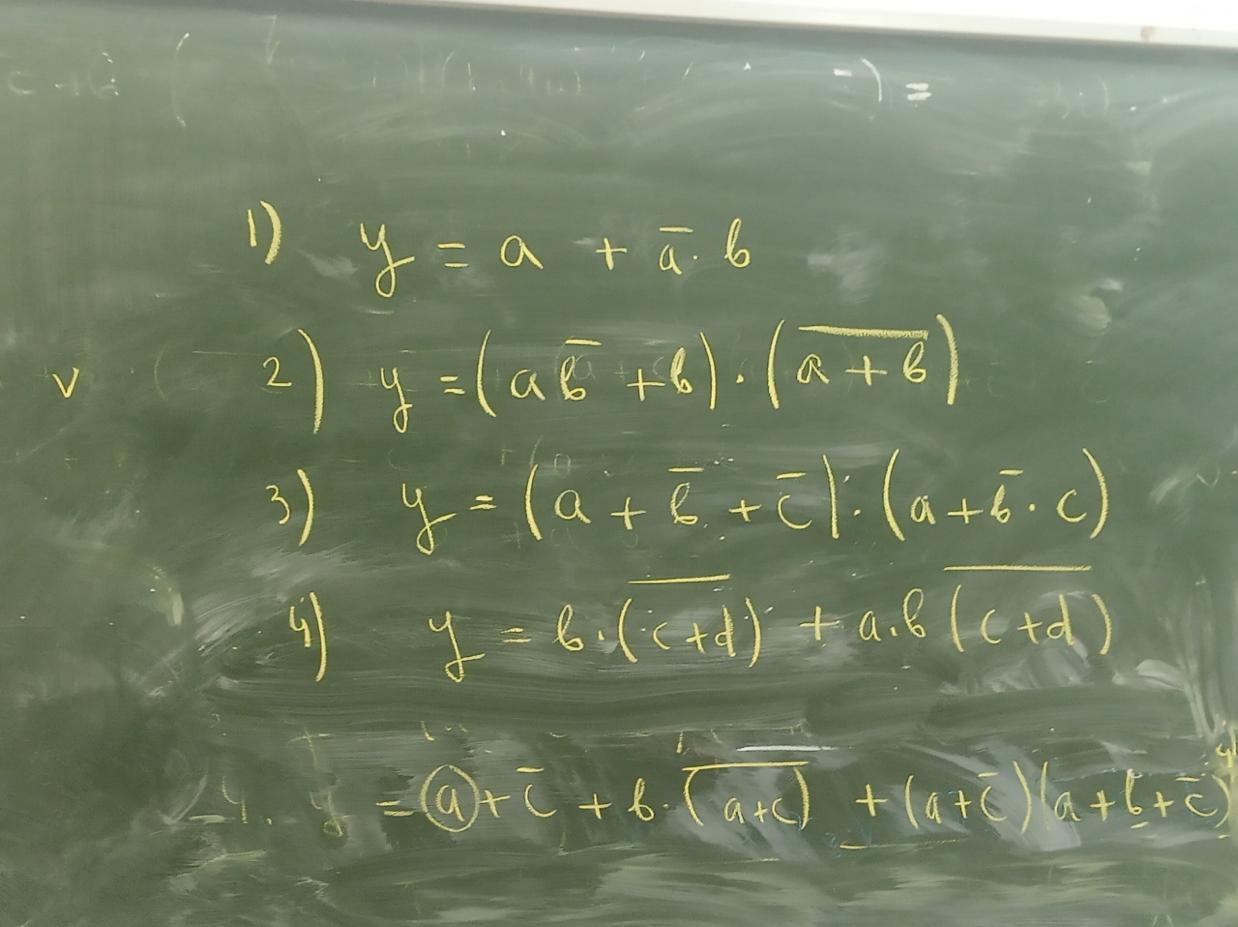 1) y = a + a̅ · b
2) y = (a b̅ + b) · (a̅ ̅+̅ ̅b̅)
3) y = (a + b̅ + c̅) · (a + b̅ · c)
4) y = b · (c̅ ̅+̅ ̅d̅) + a · b (c̅ ̅+̅ ̅d̅)
y = a + c̅ + b · (a̅+̅c̅) + (a + c̅)(a + b + c̅)